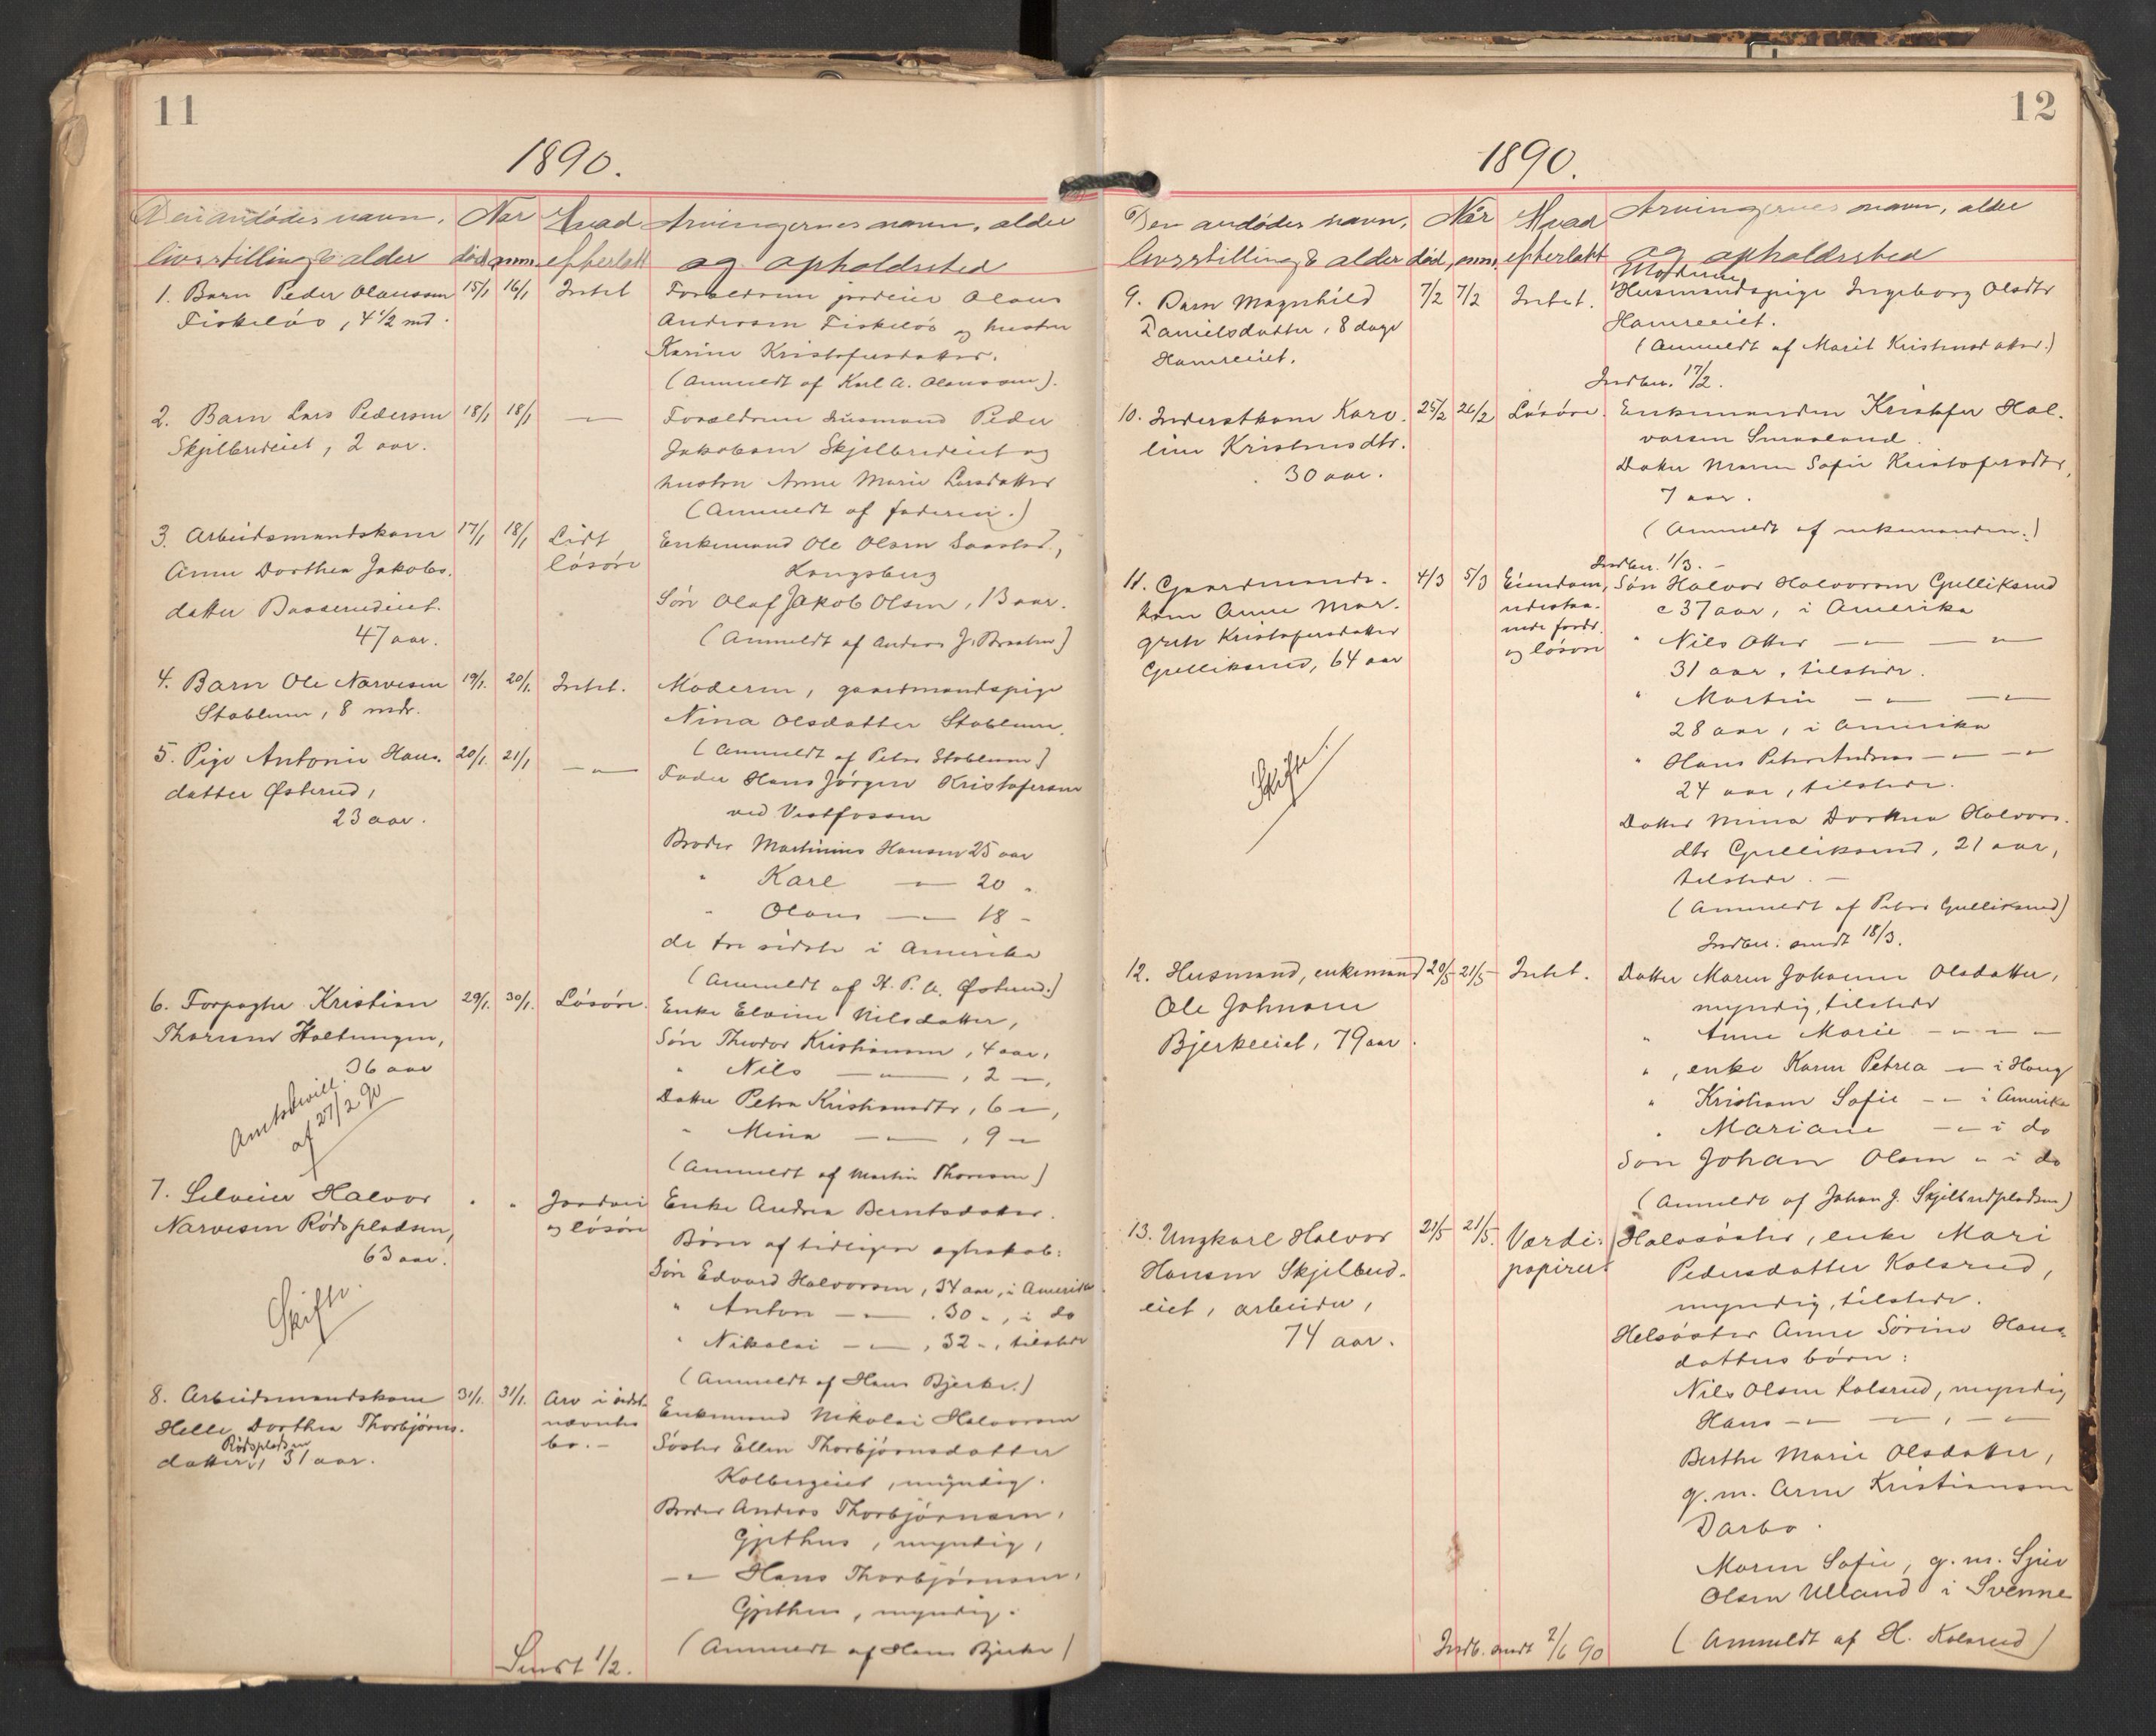 11
1890.
Den avdødes navn,
livsstilling & alder
Når
død, anm.
Hvad
efterlatt
Arvingernes navn, alder
og opholdssted
1. Barn Peder Olaussen
Fiskeløs, 4 1/2 md.
15/1 16/1
Intet
Forældrene jordeier Olaus
Andersen Fiskeløs og hustru
Karine Kristofersdatter.
(Anmeldt af Karl A. Olaussen).
2. Barn Lars Pedersen
Skjelbredeiet, 2 aar.
18/1 18/1
— " —
Forældrene husmand Peder
Jakobsen Skjelbredeiet og
hustru Anne Marie Larsdatter
(Anmeldt af faderen.)
3. Arbeidsmandskone
Anne Dorthea Jakobs-
datter Basserudeiet.
47 aar.
17/1 18/1
Lidt
løsøre
Enkemand Ole Olsen
Kongsberg
Søn Olaf Jakob Olsen, 13 aar.
(Anmeldt af Anders J. Braaten)
4. Barn Ole Narvesen
Stablum, 8 mdr.
19/1. 20/1.
Intet.
Moderen, gaardmandspige
Nina Olsdatter Stablum.
(Anmeldt af Peter Stablum)
5. Pige Antonie Hans-
datter Østerud,
23 aar.
20/1. 21/1
— " —
Fader Hans Jørgen Kristofersen
ved Vestfossen
Broder Martinius Hansen 25 aar
" Karl — " — 20 "
" Olaus — " — 18 -
de tre sidste i Amerika
(Anmeldt af H. P. A. Østerud.)
6. Forpagter Kristian
Thoresen Holtungen,
36 aar
29/1. 30/1.
Løsøre.
Amtsbevill.
af 27/2 90
Enke Elvine Nilsdatter,
Søn Theodor Kristiansen, 4 aar,
" Nils — " —, 2 —,
Datter Petra Kristiansdtr, 6 —,
" Mina — " —, 9 —
(Anmeldt af Martin Thoresen)
7. Selveier Halvor
Narvesen Rødspladsen,
63 aar.
" "
Jordvei
og løsøre
Skifte.
Enke Andrea Berntsdatter.
Børn af tidligere egteskab:
Søn Edvard Halvorsen, 34 aar, i Amerika
" Anton — " — . 30 -, i do
" Nikolai — " —, 32 -, tilstede
(Anmeldt af Hans Bjerke.)
8. Arbeidsmandskone
Helle Dorthea Thorbjørns-
Rødspladsen
datter, 31 aar.
31/1. 31/1.
Arv i sidst-
nævntes
bo. —
Enkemand Nikolai Halvorsen
Søster Ellen Thorbjørnsdatter
Kolbergeiet, myndig.
Broder Anders Thorbjørnsen,
Gjethus, myndig,
— " — Hans Thorbjørnsen,
Gjethus, myndig.
(Anmeldt af Hans Bjerke)
Sendt 1/2.
12
1890.
Den avdødes navn,
livsstilling & alder
Når
død, anm.
Hvad
efterlatt
Arvingernes navn, alder
og opholdssted
9. Barn Magnhild
Danielsdatter, 8 dage
Hamreeiet.
7/2 7/2
Intet.
Moderen
Husmandspige Ingeborg Olsdtr
Hamreeiet.
(Anmeldt af Marit Kristensdatter.)
Indber. 17/2.
10. Inderstkone Karo-
line Kristensdtr.
30 aar.
25/2 26/2
Løsøre.
Enkemanden Kristofer Hal-
vorsen Smaaland.
Datter Maren Sofie Kristofersdtr,
7 aar.
(Anmeldt af enkemanden.)
Indber. 1/3. —
11. Gaardmands-
kone Anne Mar-
grete Kristofersdatter
Gulliksrud, 64 aar
4/3 5/3
Eiendom,
udestaa-
ende fordr.
og løsøre
Skifte.
Søn Halvor Halvorsen Gulliksrud
c 37 aar, i Amerika
" Nils Otter — " — — " —
31 aar, tilstede.
" Martin — " — — " —
28 aar, i Amerika
" Hans Peter Andreas — " — " —
24 aar, tilstede.
Datter Mina Dorthea Halvors-
dtr Gulliksrud, 21 aar,
tilstede. —
(Anmeldt af Peter Gulliksrud)
Indber. sendt 18/3.
12. Husmand, enkemand
Ole Johnsen
Bjerkeeiet, 79 aar.
20/5 21/5
Intet.
Datter Maren Johanne Olsdatter,
myndig, tilstede
" Anne Marie — " — " —
" , enke Karen Petrea — " i Houg
" Kristiane Sofie — " — i Amerika
" Mariane — " — i do
Søn Johan Olsen " i do
(Anmeldt af Johan J. Skjelbredpladsen)
13. Ungkarl Halvor
Hansen Skjelbred-
eiet, arbeider,
74 aar.
21/5 21/5.
Værdi-
papirer.
Halvsøster, enke Mari
Pedersdatter Kolsrud,
myndig, tilstede.
Helsøster Anne Sørine Hans-
datters børn:
Nils Olsen Kolsrud, myndig
Hans — " — — " —, — " —
Berthe Marie Olsdatter,
g. m. Arne Kristiansen
Darbo.
Maren Sofie, g. m.
Olsen Ulland i Svenne
(Anmeldt af H. Kolsrud)
Indb. sendt 2/6 90